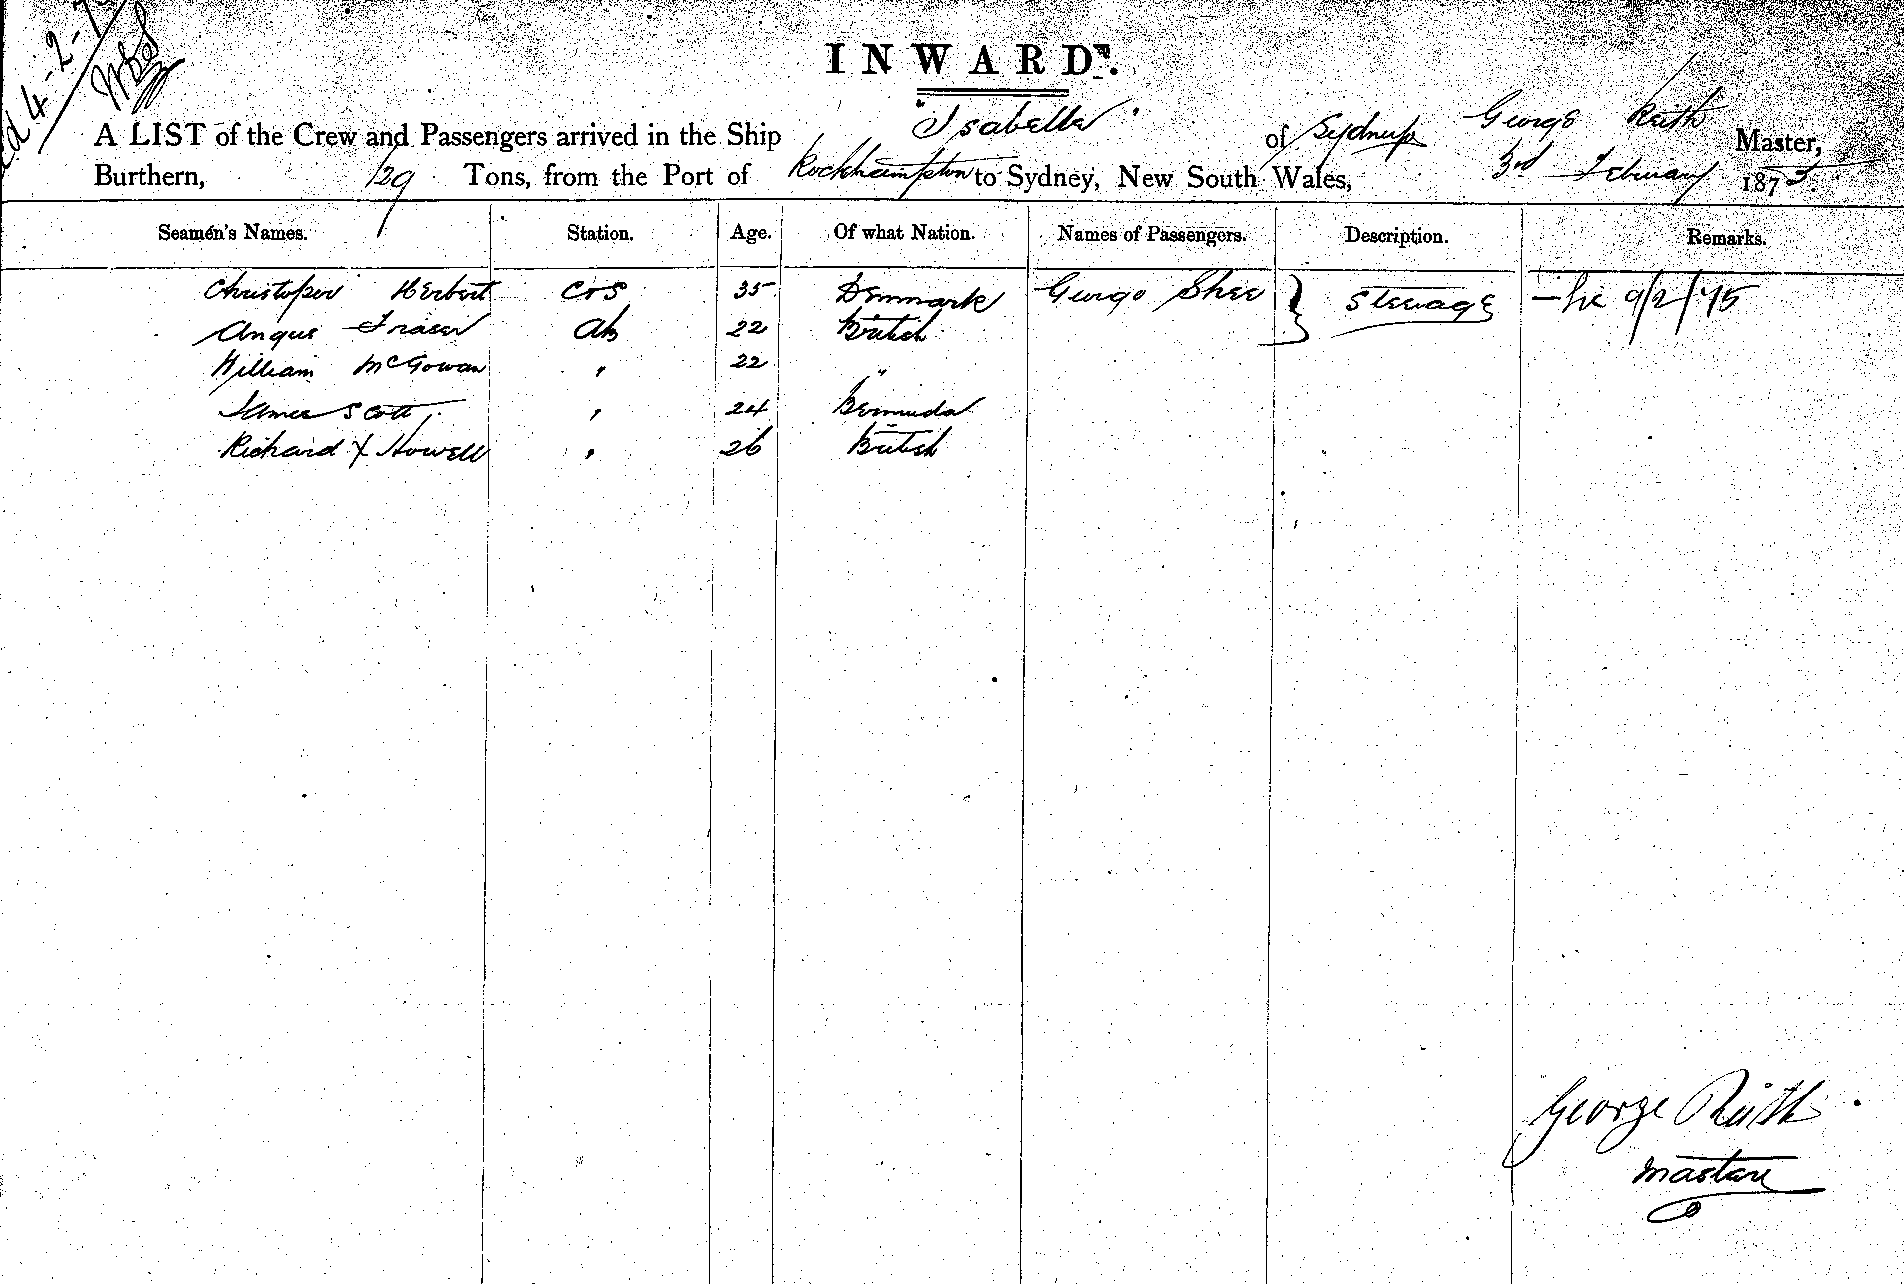 4-2-7
INWARDS.
A LIST of the Crew and Passengers arrived in the Ship "Isabella" of Sydney George Keith Master,
Burthern, 129 Tons, from the Port of Rockhampton to Sydney, New South Wales, 3rd February 1875.
Seamen's Names. Station. Age. Of what Nation. Names of Passengers. Description. Remarks.
Christoper Herbert C&S 35 Denmark George Shee } Steerage 9/2/75
Angus Fraser AB 22 British
William McGowan " 22 "
James Scott " 24 Bermuda
Richard X Howell " 26 British
George Keith
Master